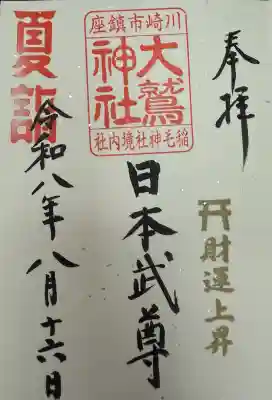 奉拝
財運上昇
川崎市鎮座
大鷲神社
稲毛神社境内社
日本武尊
夏詣
令和八年八月十六日